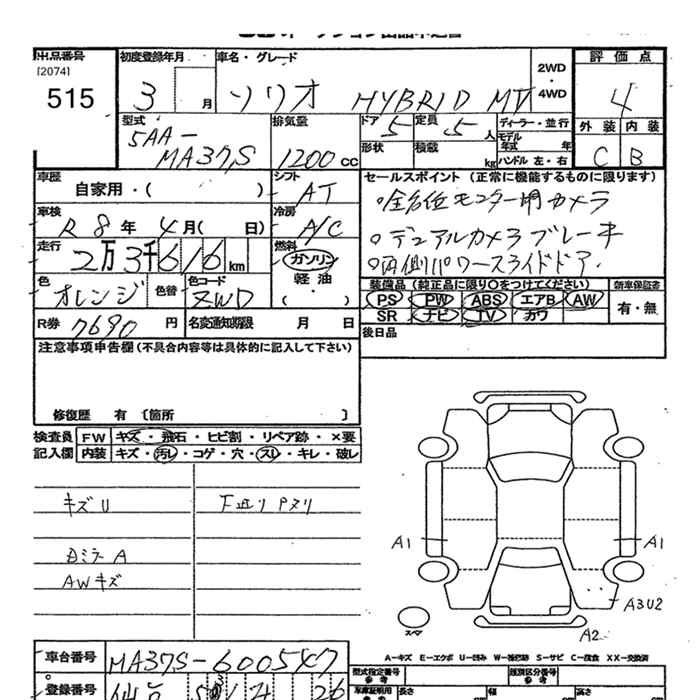 出品番号
[2074]
515
初度登録年月
3 月
車名・グレード
ソリオ HYBRID MV
2WD
・
4WD
評価点
4
外装 内装
C B
型式
5AA-
MA37S
排気量
1200 cc
ドア 5
定員 5 人
形状
積載 kg
ディーラー・並行
モデル
年式 年
ハンドル 左・右
車歴
自家用・( )
シフト
AT
車検
R 8 年 4 月( 日)
冷房
A/C
走行
2万3千616 km
燃料
ガソリン
軽油
( ・ )
色
オレンジ
色替
色コード
ZWD
セールスポイント (正常に機能するものに限ります)
・全方位モニター用カメラ
・デュアルカメラブレーキ
・両側パワースライドドア
装備品 (純正品に限り〇をつけてください)
PS PW ABS エアB AW
SR ナビ TV カワ
新車保証書
有・無
R券 7690 円
名変通知期限 月 日
後日品
注意事項申告欄 (不具合内容等は具体的に記入して下さい)
修復歴 有 〔箇所 〕
検査員
記入欄
FW キズ・飛石・ヒビ割・リペア跡・×要
内装 キズ・汚レ・コゲ・穴・スレ・キレ・破レ
キズU
下廻りPヌリ
Bミラー A
AWキズ
A1
A1
A3U2
A2
スペア
A-キズ E-エクボ U-凹み W-補修跡 S-サビ C-腐食 XX-交換済
車台番号
MA37S-6005
登録番号
仙台
型式指定番号
類別区分番号
車庫証明用
参考
長さ
幅
高さ